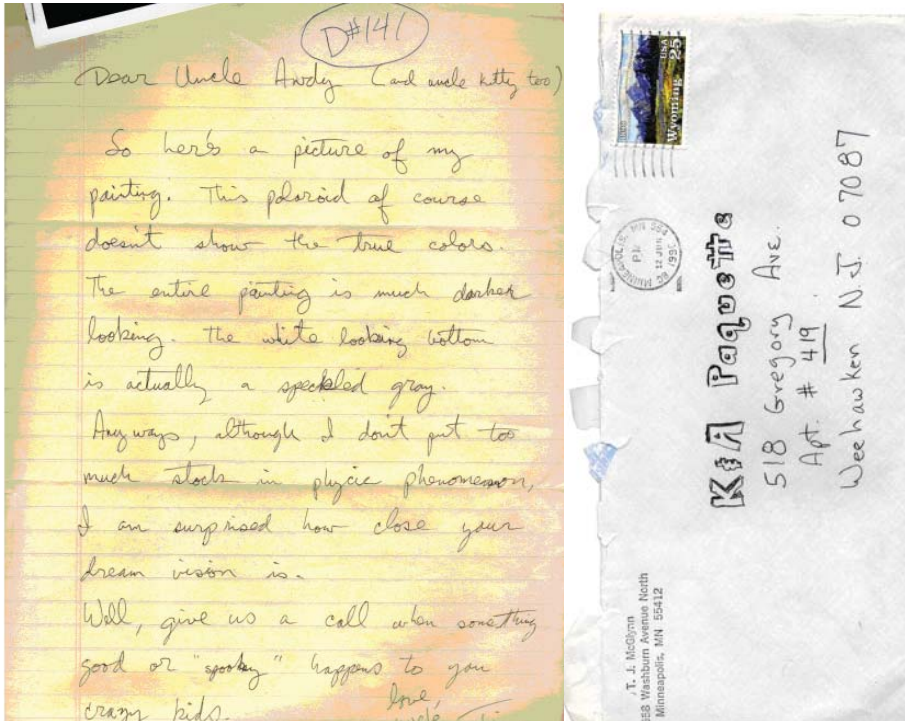 D#141
Dear Uncle Andy (and uncle kitty too)
So here's a picture of my
painting. This polaroid of course
doesn't show the true colors.
The entire painting is much darker
looking. The white looking bottom
is actually a speckled gray.
Anyways, although I don't put too
much stock in phycic phenomenon,
I am surprised how close your
dream vision is.
Well, give us a call when something
good or "spooky" happens to you
crazy kids.
love,
USA 25
Wyoming
1890
MINNEAPOLIS, MN 554
PM
12 JUN
1990
Kit Paquette
518 Gregory Ave.
Apt. # 419
Weehawken N.J. 07087
T. J. McGlynn
Washburn Avenue North
Minneapolis, MN 55412